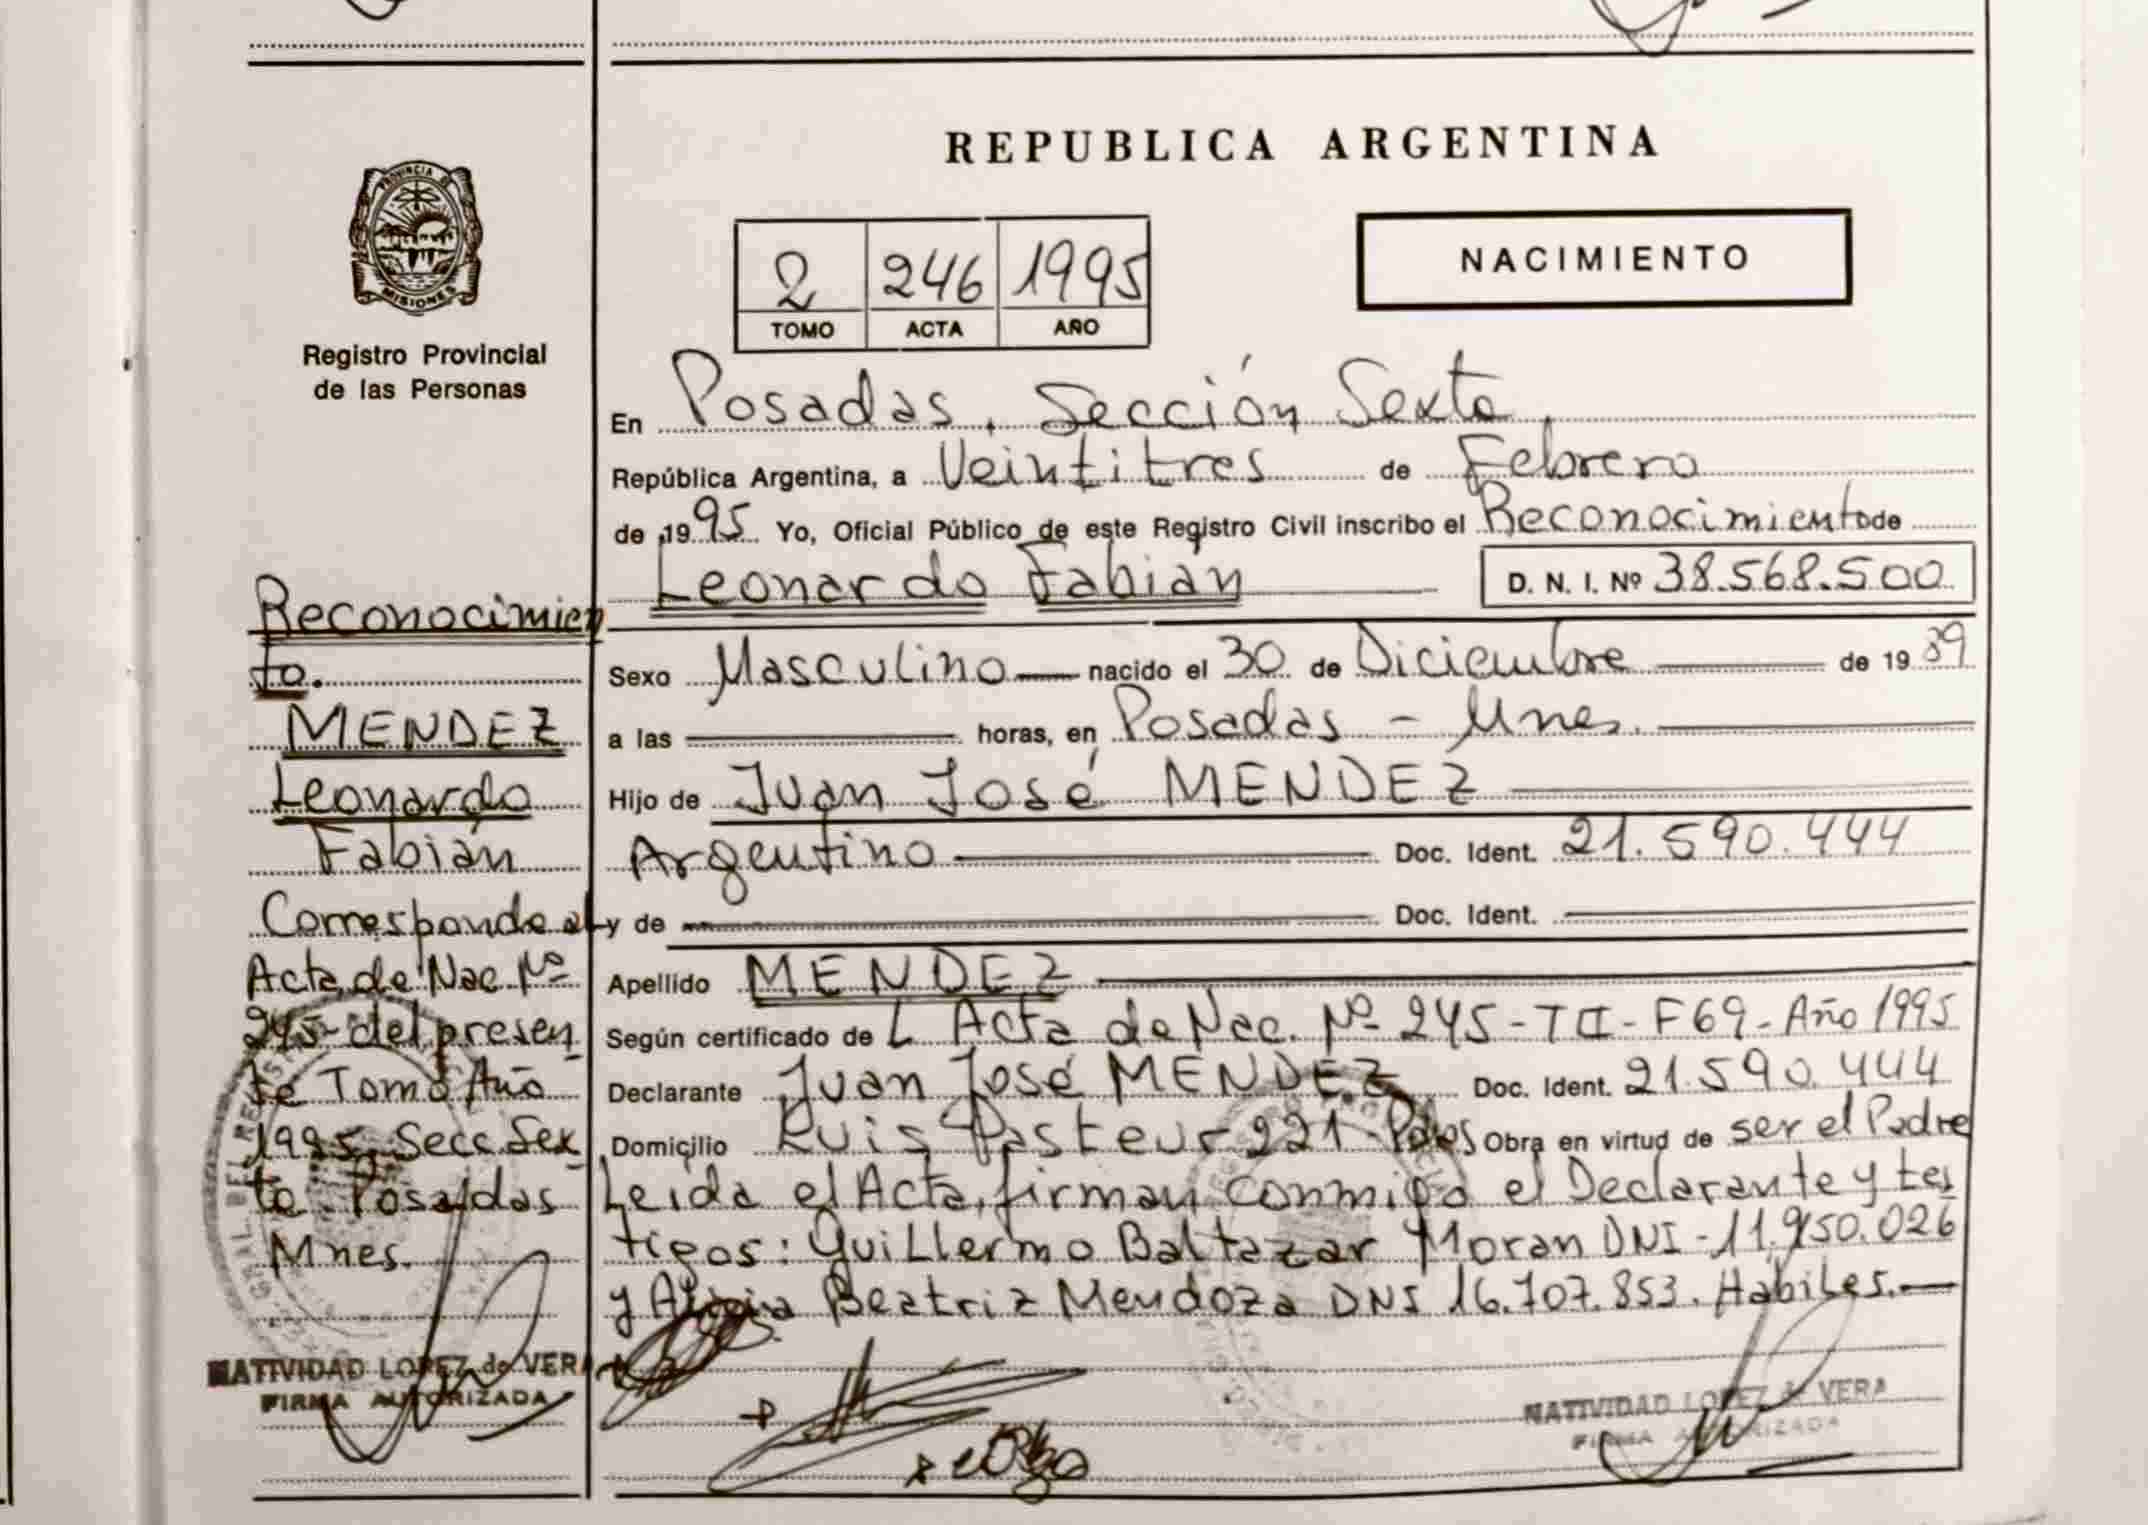 PROVINCIA DE
MISIONES
Registro Provincial
de las Personas
Reconocimien
to.
MENDEZ
Leonardo
Fabián
Corresponde al
Acta de Nac Nº
245 del presen
te Tomo Año
1995, Secc. Sex
ta. Posadas
Mnes.
NATIVIDAD LOPEZ de VERA
FIRMA AUTORIZADA
REPUBLICA ARGENTINA
2 246 1995
TOMO ACTA AÑO
NACIMIENTO
En Posadas, Sección Sexta,
República Argentina, a Veintitres de Febrero
de 1995 Yo, Oficial Público de este Registro Civil inscribo el Reconocimiento de
Leonardo Fabián D. N. I. Nº 38.568.500
Sexo Masculino nacido el 30 de Diciembre de 1989
a las horas, en Posadas - Mnes.
Hijo de Juan José MENDEZ
Argentino Doc. Ident. 21.590.444
y de Doc. Ident.
Apellido MENDEZ
Según certificado de L Acta de Nac. Nº 245-TII-F69-Año 1995
Declarante Juan José MENDEZ Doc. Ident. 21.590.444
Domicilio Luis Pasteur 221-Pdas Obra en virtud de ser el Padre
Leida el Acta, firman conmigo el Declarante y tes
tigos: Guillermo Baltazar Moran DNI-11.950.026
y Alicia Beatriz Mendoza DNI 16.707.853. Hábiles.
NATIVIDAD LOPEZ de VERA
FIRMA AUTORIZADA